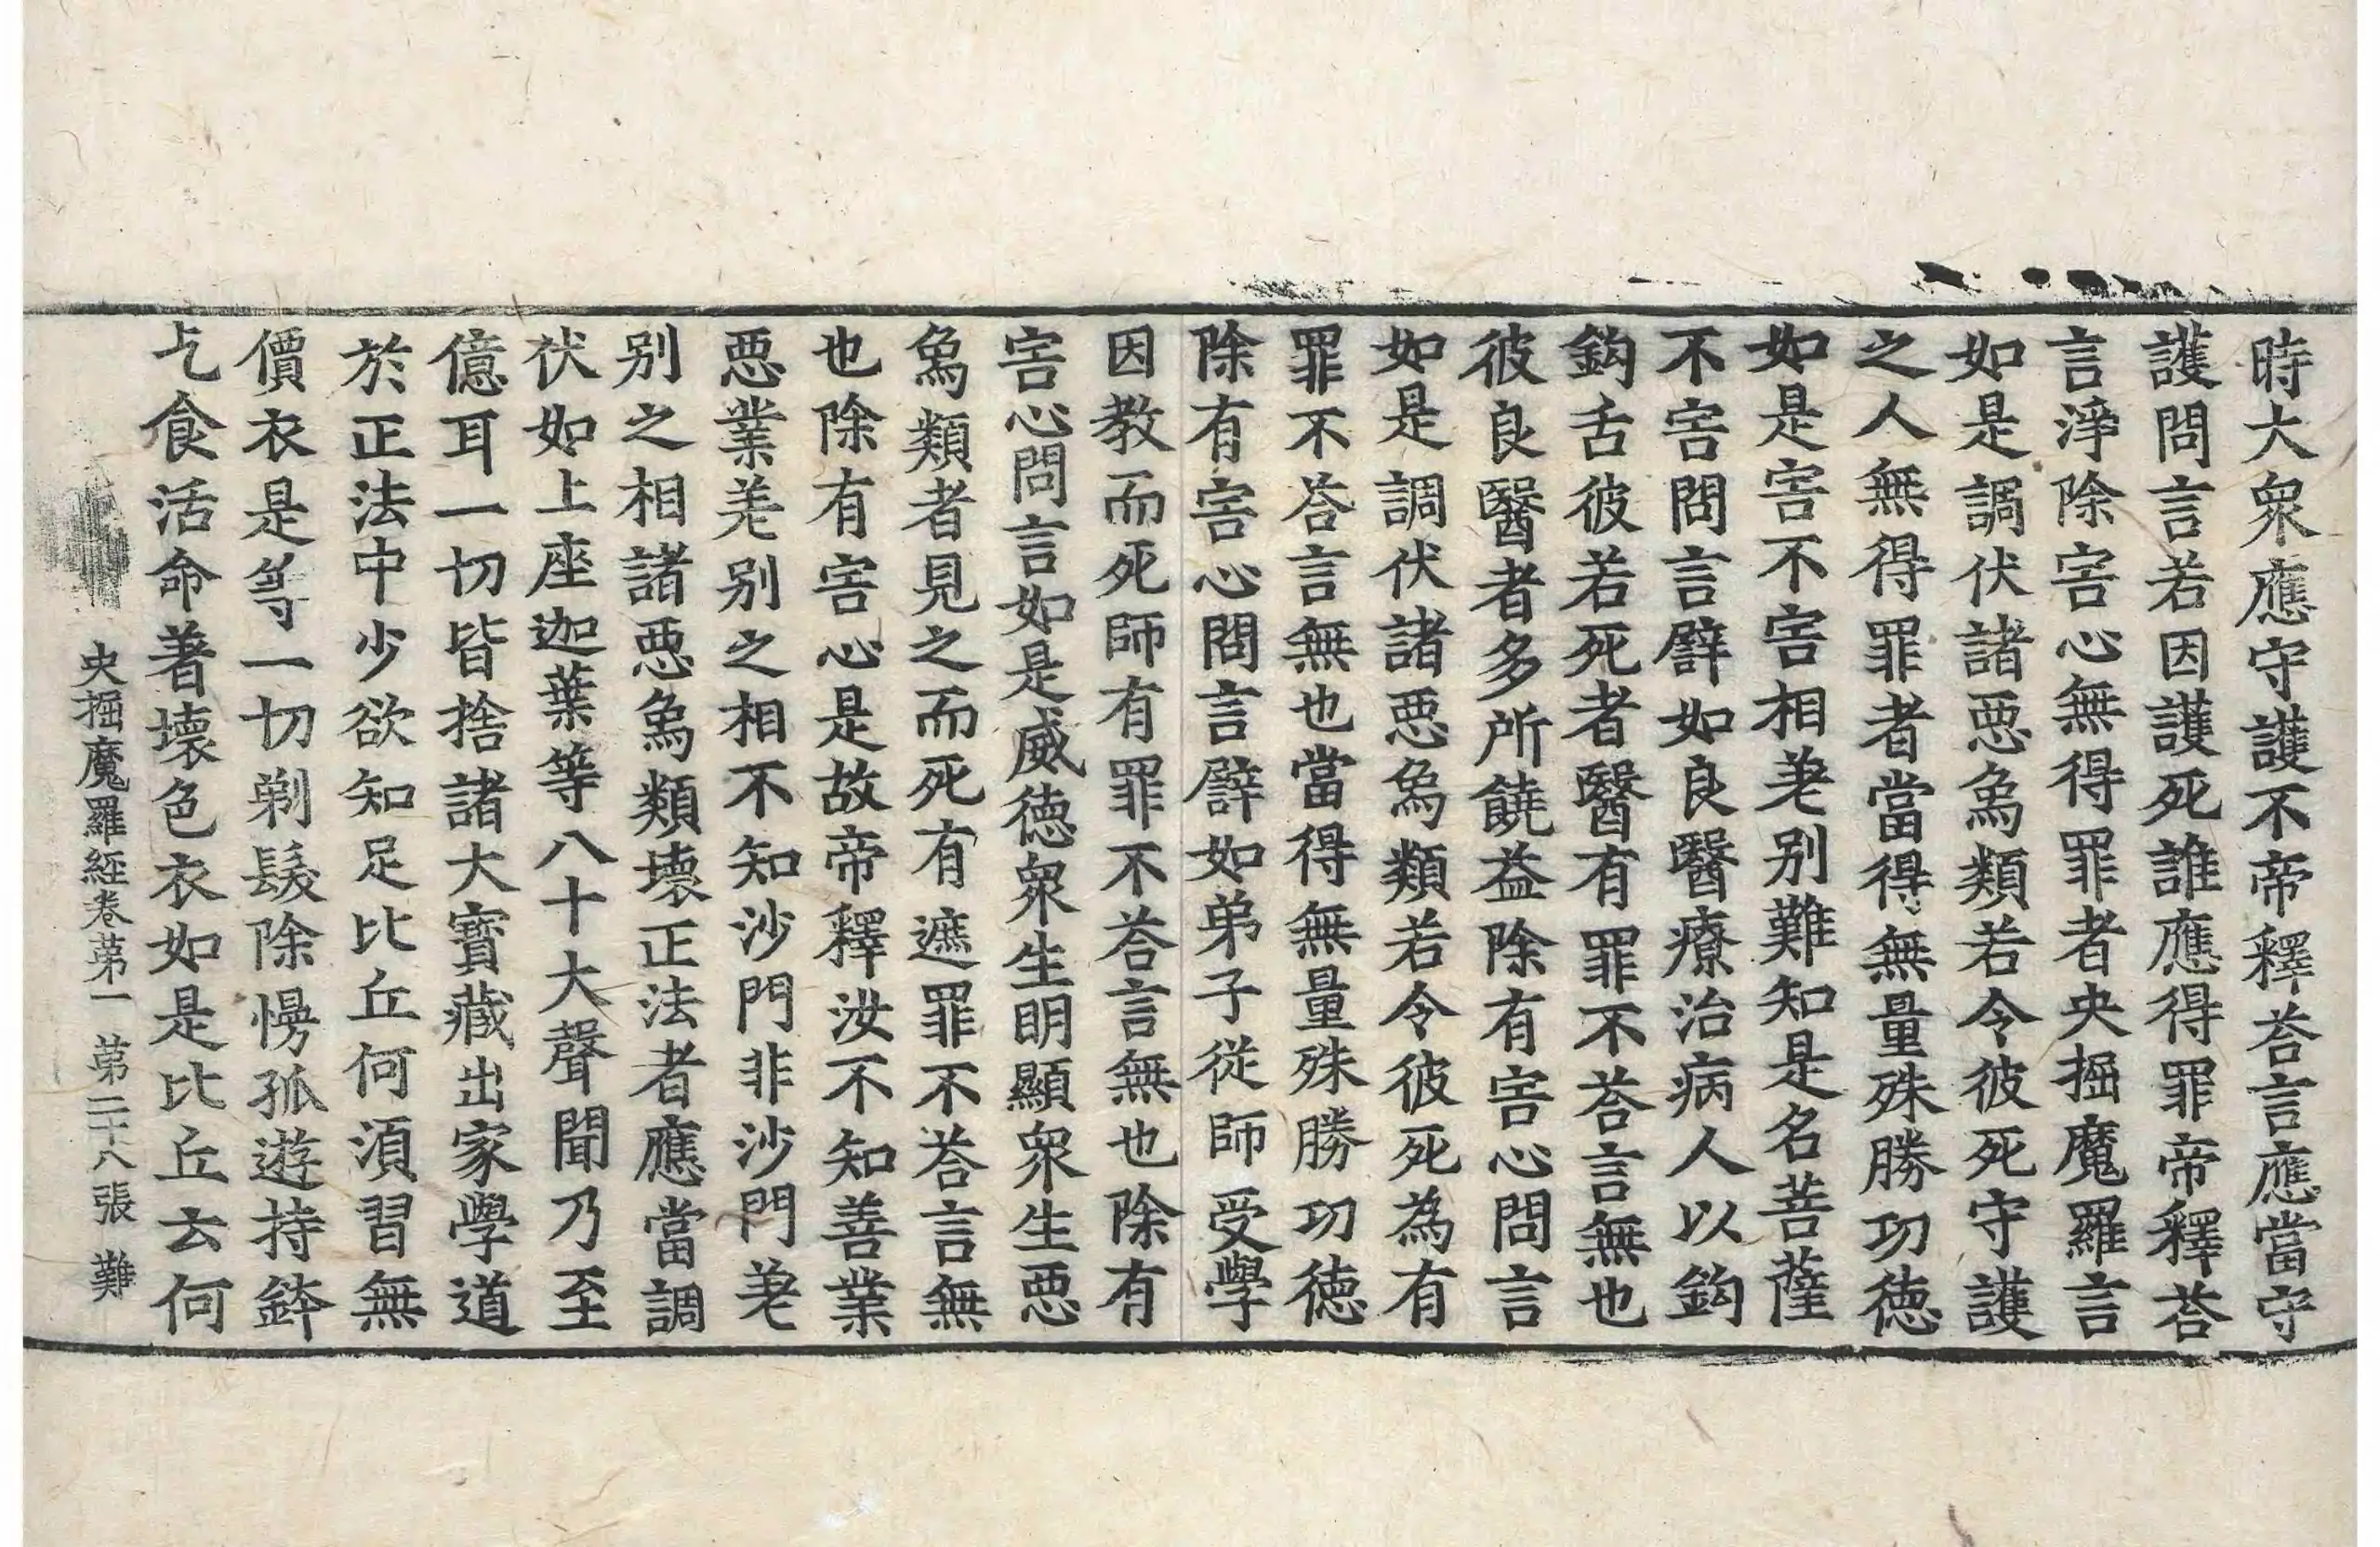 時大衆應守護不帝釋荅言應當守
護問言若因護死誰應得罪帝釋荅
言淨除害心無得罪者央掘魔羅言
如是調伏諸惡象類若令彼死守護
之人無得罪者當得無量殊勝功德
如是害不害相差別難知是名菩薩
不害問言譬如良醫療治病人以鈎
鈎舌彼若死者醫有罪不荅言無也
彼良醫者多所饒益除有害心問言
如是調伏諸惡象類若令彼死為有
罪不荅言無也當得無量殊勝功德
除有害心問言譬如弟子從師受學
因教而死師有罪不荅言無也除有
害心問言如是威德衆生明顯衆生惡
象類者見之而死有遮罪不荅言無
也除有害心是故帝釋汝不知善業
惡業差別之相不知沙門非沙門差
別之相諸惡象類壞正法者應當調
伏如上座迦葉等八十大聲聞乃至
億耳一切皆捨諸大寶藏出家學道
於正法中少欲知足比丘何須習無
價衣是等一切剃髮除慢孤遊持鉢
乞食活命著壞色衣如是比丘云何
央掘魔羅經卷第一 第二十八張 難